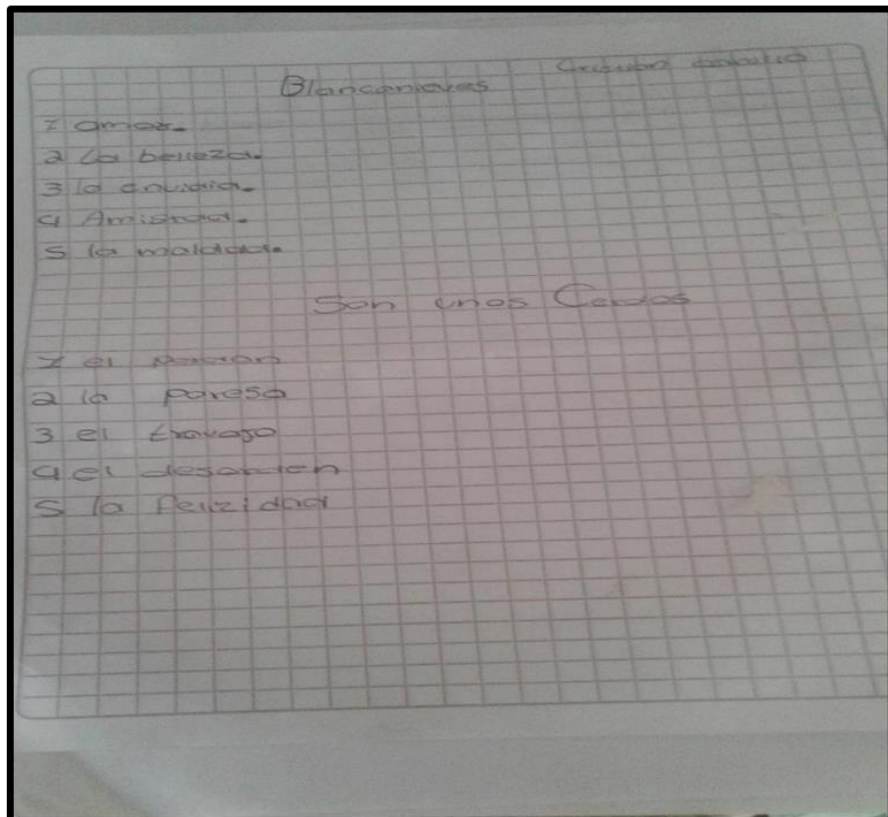 Blancanieves
1 amor.
2 la belleza.
3 la envidia.
4 Amistad.
5 la maldad.
Son unos Cerdos
1 el
2 la paresa
3 el travajo
4 el desorden
5 la felizidad